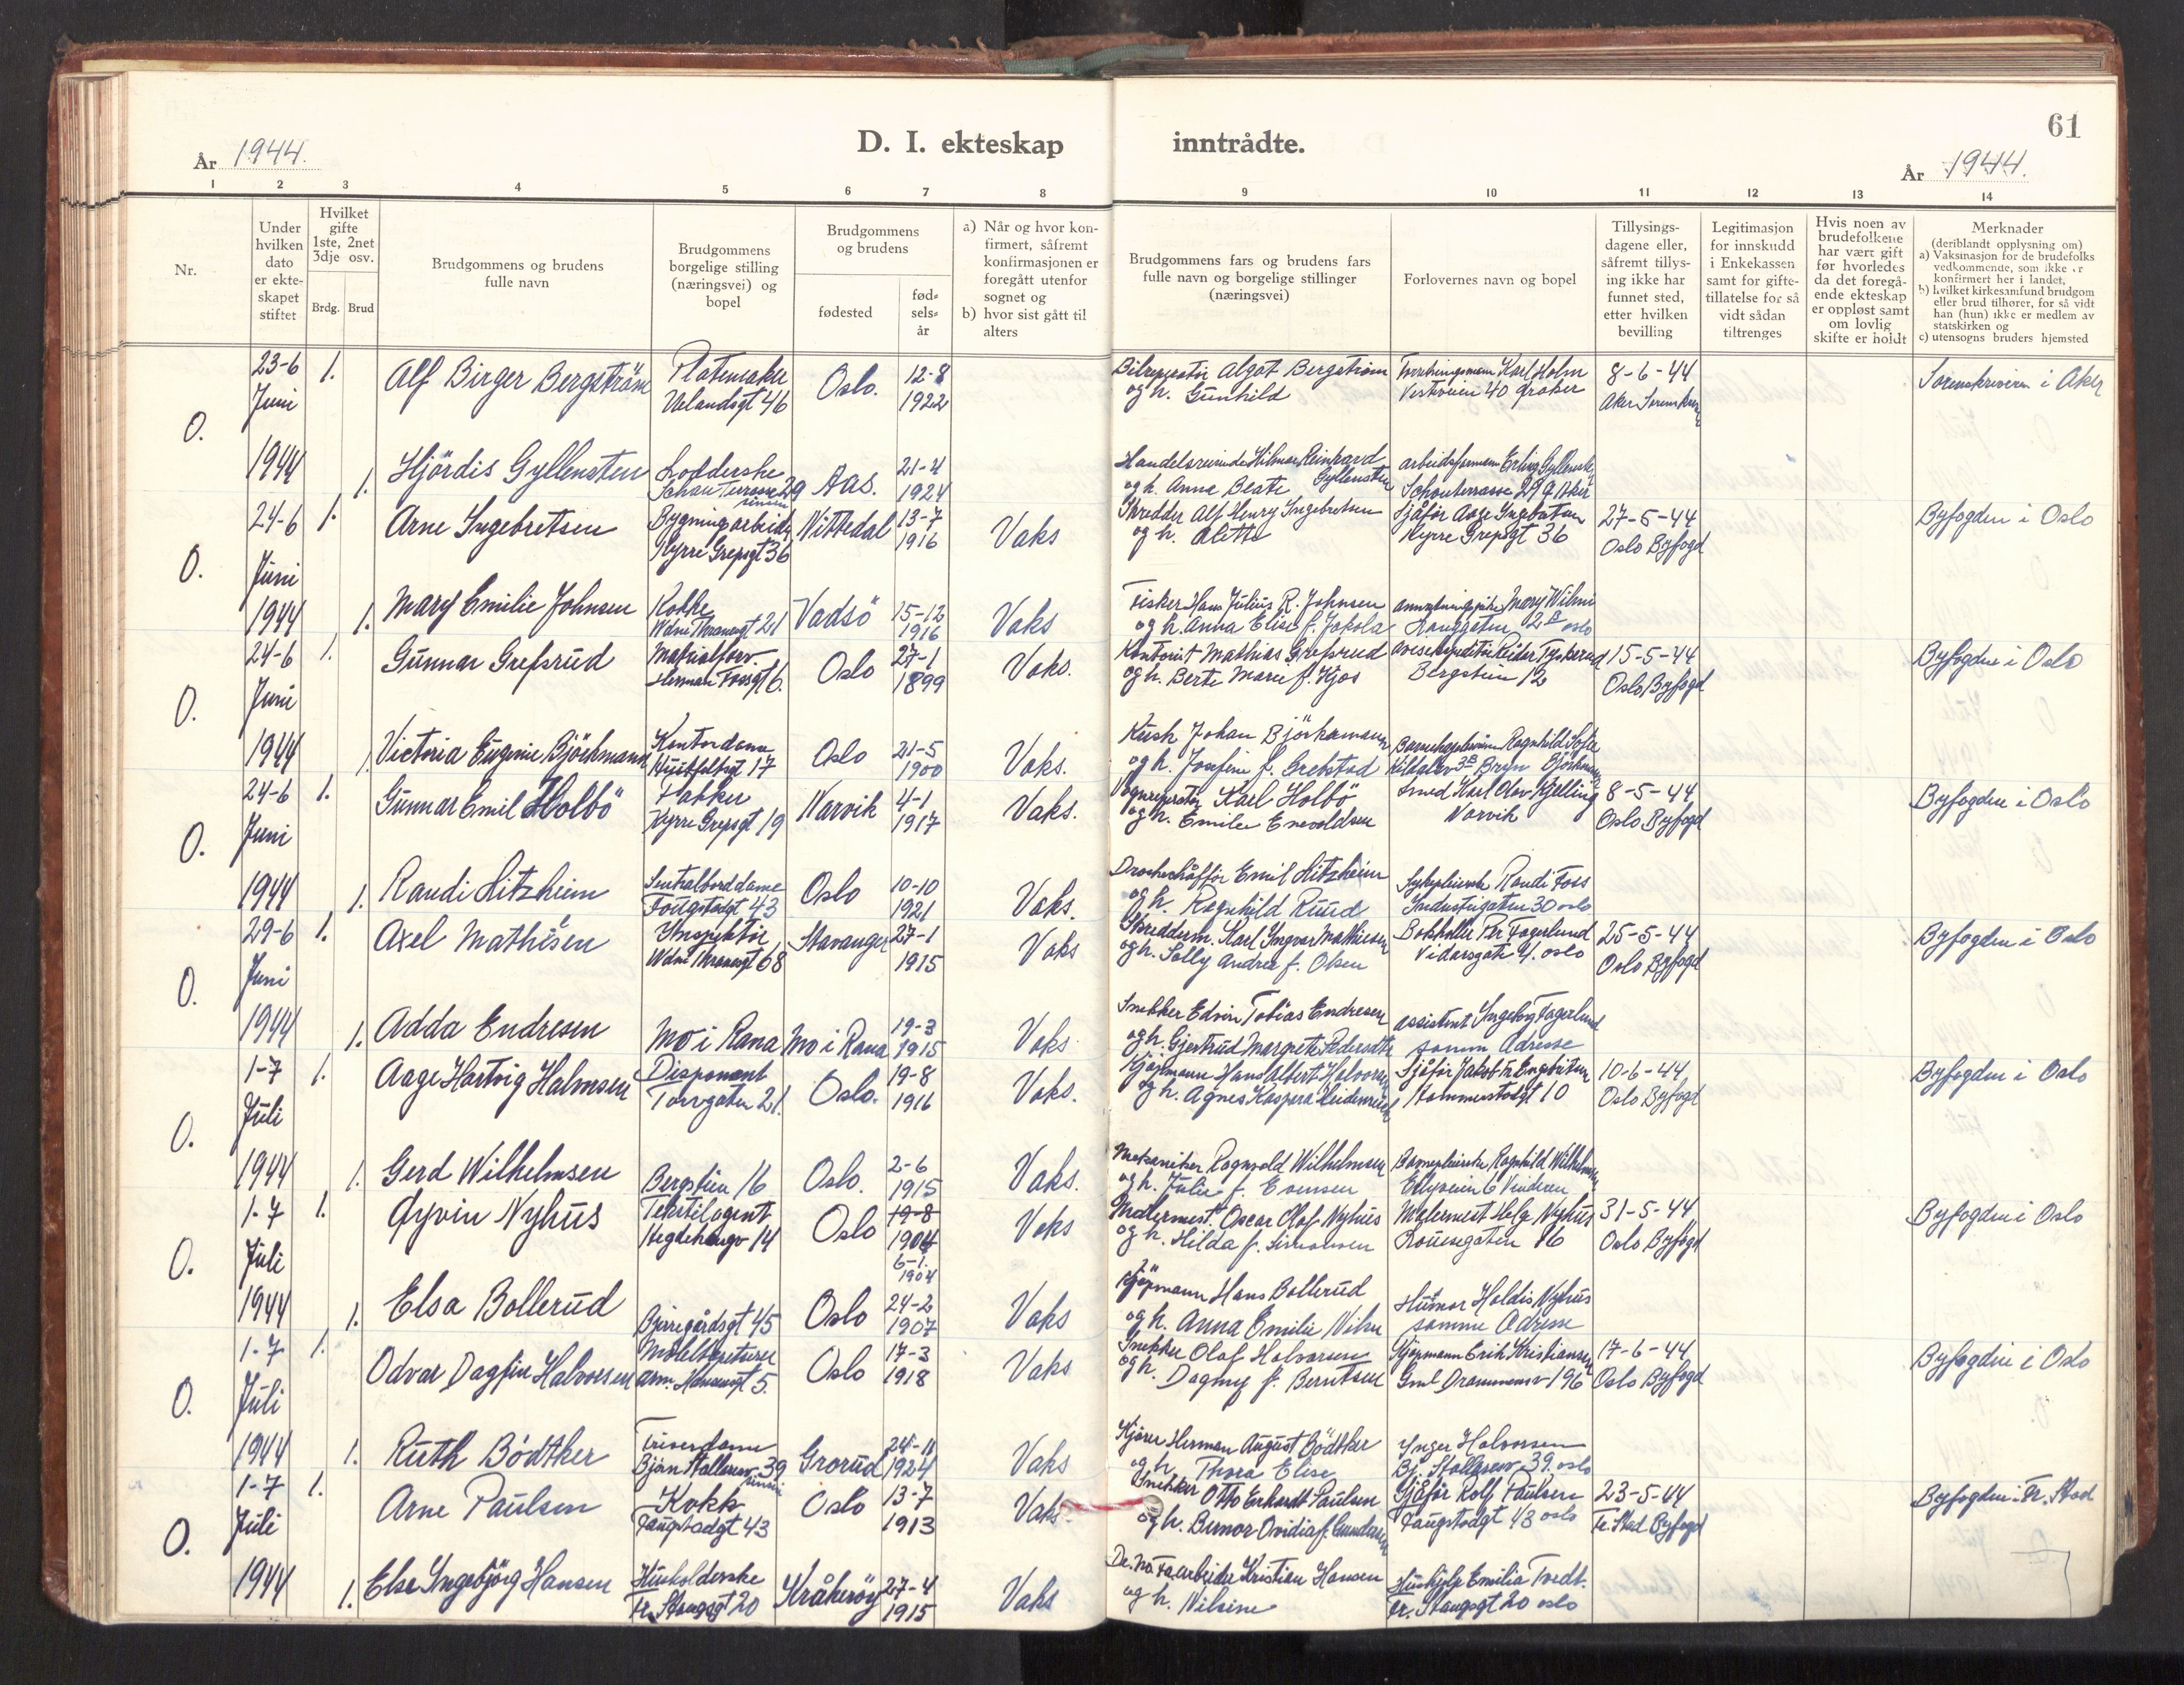 År 1944.
D. I. ekteskap inntrådte.
61
År 1944.
1 2 3 4 5 6 7 8 9 10 11 12 13 14
Nr.
Under hvilken dato er ekte- skapet stiftet
Hvilket gifte 1ste, 2net 3dje osv.
Brdg. Brud
Brudgommens og brudens fulle navn
Brudgommens borgelige stilling (næringsvei) og bopel
Brudgommens og brudens
fødested
fød- sels- år
a) Når og hvor kon- firmert, såfremt konfirmasjonen er foregått utenfor sognet og
b) hvor sist gått til alters
Brudgommens fars og brudens fars fulle navn og borgelige stillinger (næringsvei)
Forlovernes navn og bopel
Tillysings- dagene eller, såfremt tillys- ing ikke har funnet sted, etter hvilken bevilling
Legitimasjon for innskudd i Enkekassen samt for gifte- tillatelse for så vidt sådan tiltrenges
Hvis noen av brudefolkene har vært gift før hvorledes da det foregå- ende ekteskap er oppløst samt om lovlig skifte er holdt
Merknader
(deriblandt opplysning om)
a) Vaksinasjon for de brudefolks vedkommende, som ikke er konfirmert her i landet,
b) hvilket kirkesamfund brudgom eller brud tilhører, for så vidt han (hun) ikke er medlem av statskirken og
c) utensogns bruders hjemsted
O. 23-6 Juni 1944
1. Alf Birger Bergström Valandsgt 46 Oslo. 12-8 1922
Algot Bergström og h. Gunhild
Karl Holm Vestveien 40
8-6-44 Aker
Sorenskriveren i Aker
1. Hjördis Gyllensten 29 Aas. 21-4 1924
Hilmar Reinhard Gyllensten og h. Anna Beate
Erling
O. 24-6 Juni 1944
1. Arne Ingebretsen Bygningsarbeid. Kyrre Grepsgt 36 Nittedal 13-7 1916 Vaks
Skredder Alf Henry Ingebretsen og h. Alette
Sjåför Aage Ingebretsen Kyrre Grepsgt 36
27-5-44 Oslo Byfogd
Byfogden i Oslo
1. Mary Emilie Johnsen Kokke 21 Vadsö 15-12 1916 Vaks
Fisker Hans Julius R. Johnsen og h. Anna Elise f. Jokola
Mary oslo
O. 24-6 Juni 1944
1. Gunnar Grefsrud Herman Fossgt 6. Oslo 27-1 1899 Vaks.
Kontorist Mathias Grefsrud og h. Berte Marie f. Kjos
Bergstien 12
15-5-44 Oslo Byfogd
Byfogden i Oslo
1. Victoria Eugenie Björkmann Kontordame 17 Oslo 21-5 1900 Vaks.
Kusk Johan Björkmann og h. Josefine f. Grebstad
Ragnhild Sofie Björkmann
O. 24-6 Juni 1944
1. Gunnar Emil Holbö Pakker Kyrre Grepsgt 19 Narvik 4-1 1917 Vaks.
Vognreparatör Karl Holbö og h. Emilie Enevoldsen
Smed Karl Olav Kjelling Narvik
8-5-44 Oslo Byfogd
Byfogden i Oslo
1. Randi Litzheim Sentralborddame Fougstadgt 43 Oslo 10-10 1921 Vaks.
Emil Litzheim og h. Ragnhild Ruud
Randi Foss Industrigaten 30 oslo
O. 29-6 Juni 1944
1. Axel Mathisen Inspektör 68 Stavanger 27-1 1915 Vaks
Skredderm. Karl Ingvar Mathiesen og h. Solly Andrea f. Olsen
Bokholder Per Fagerlund Vidarsgate 4. oslo
25-5-44 Oslo Byfogd
Byfogden i Oslo
1. Adda Endresen Mo i Rana Mo i Rana 19-3 1915 Vaks
Snekker Edvin Tobias Endresen og h. Gjertrud Margrete
Assistent Ingeborg Fagerlund samme Adresse
O. 1-7 Juli 1944
1. Aage Hartvig Halvorsen Disponent Torvgaten 21. Oslo. 19-8 1916 Vaks.
Kjöpmann Hans Albert Halvorsen og h. Agnes Kaspara
Sjåför Jakob 10
10-6-44 Oslo Byfogd
Byfogden i Oslo
1. Gerd Wilhelmsen Bergstien 16 Oslo. 2-6 1915 Vaks.
Mekaniker Ragnvald Wilhelmsen og h. Julie f. Evensen
Ragnhild Wilhelmsen Vinderen
O. 1-7 Juli 1944
1. Øyvin Nyhus Tekstilagent Hegdehaugv 14 Oslo 19-8 1904 6-1. 1904 Vaks
Malermest. Oscar Olaf Nyhus og h. Hilda f. Simonsen
Malermest Helge Nyhus
31-5-44 Oslo Byfogd
Byfogden i Oslo
1. Elsa Bollerud Bjerregårdsgt 45 Oslo 24-2 1907 Vaks
Kjöpmann Hans Bollerud og h. Anna Emilie
Husmor Haldis Nyhus samme Adresse
O. 1-7 Juli 1944
1. Odvar Dagfin Halvorsen 5. Oslo 17-3 1918 Vaks
Snekker Olaf Halvorsen og h. Dagmy f. Berntsen
Kjöpmann Erik Kristiansen Gml Drammensv 196
17-6-44 Oslo Byfogd
Byfogden i Oslo
1. Ruth Bödtker 39 Grorud 24-11 1924 Vaks
Kjörer Herman August Bödtker og h. Thora Elise
Inger Halvorsen 39. oslo
O. 1-7 Juli 1944
1. Arne Paulsen Kokk Faugstadgt 43 Oslo 13-7 1913 Vaks.
Snekker Otto Erhardt Paulsen og h. Ovidia f. Gundersen
Sjåför Rolf Paulsen Faugstadgt 43 oslo
23-5-44 Fr. Stad Byfogd
Byfogden i Fr. Stad
1. Else Ingebjörg Hansen Husholderske Fr. Stangsgt 20 Kråkeröy 27-4 1915 Vaks
Kristian Hansen og h. Nilsine
Emilia Tvedt. Fr. Stangsgt 20 oslo